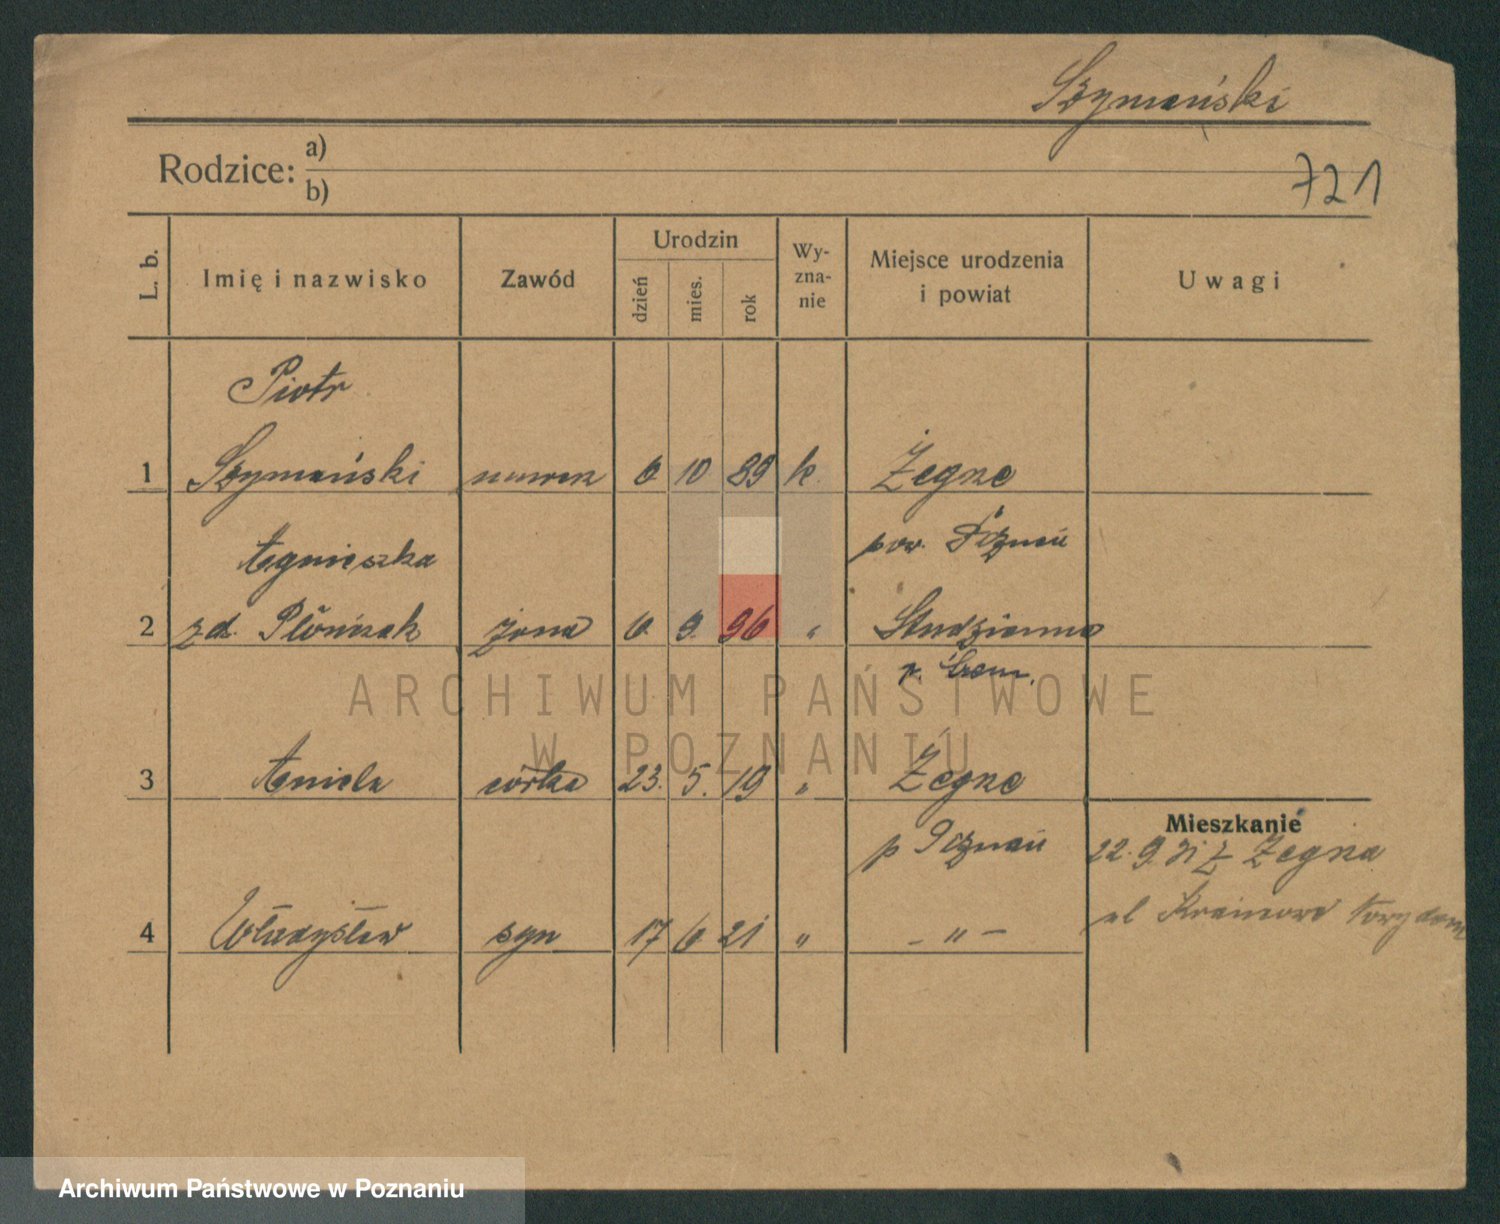 Szymański
Rodzice: a)
b)
721
L. b.
Imię i nazwisko
Zawód
Urodzin
dzień
mies.
rok
Wy-
zna-
nie
Miejsce urodzenia
i powiat
Uwagi
Piotr
1 Szymański murarz 6 10 89 k Żegrze
pow. Poznań
Agnieszka
2 zd. żona 6 9. 96 " Studzianna
p. Śrem.
3 Aniela córka 23. 5. 19 " Żegrze
p Poznań
Mieszkanie
22. 9. z Żegrza
4 Władysław syn 17 6 21 " - " -
ul
ARCHIWUM PAŃSTWOWE
W POZNANIU
Archiwum Państwowe w Poznaniu